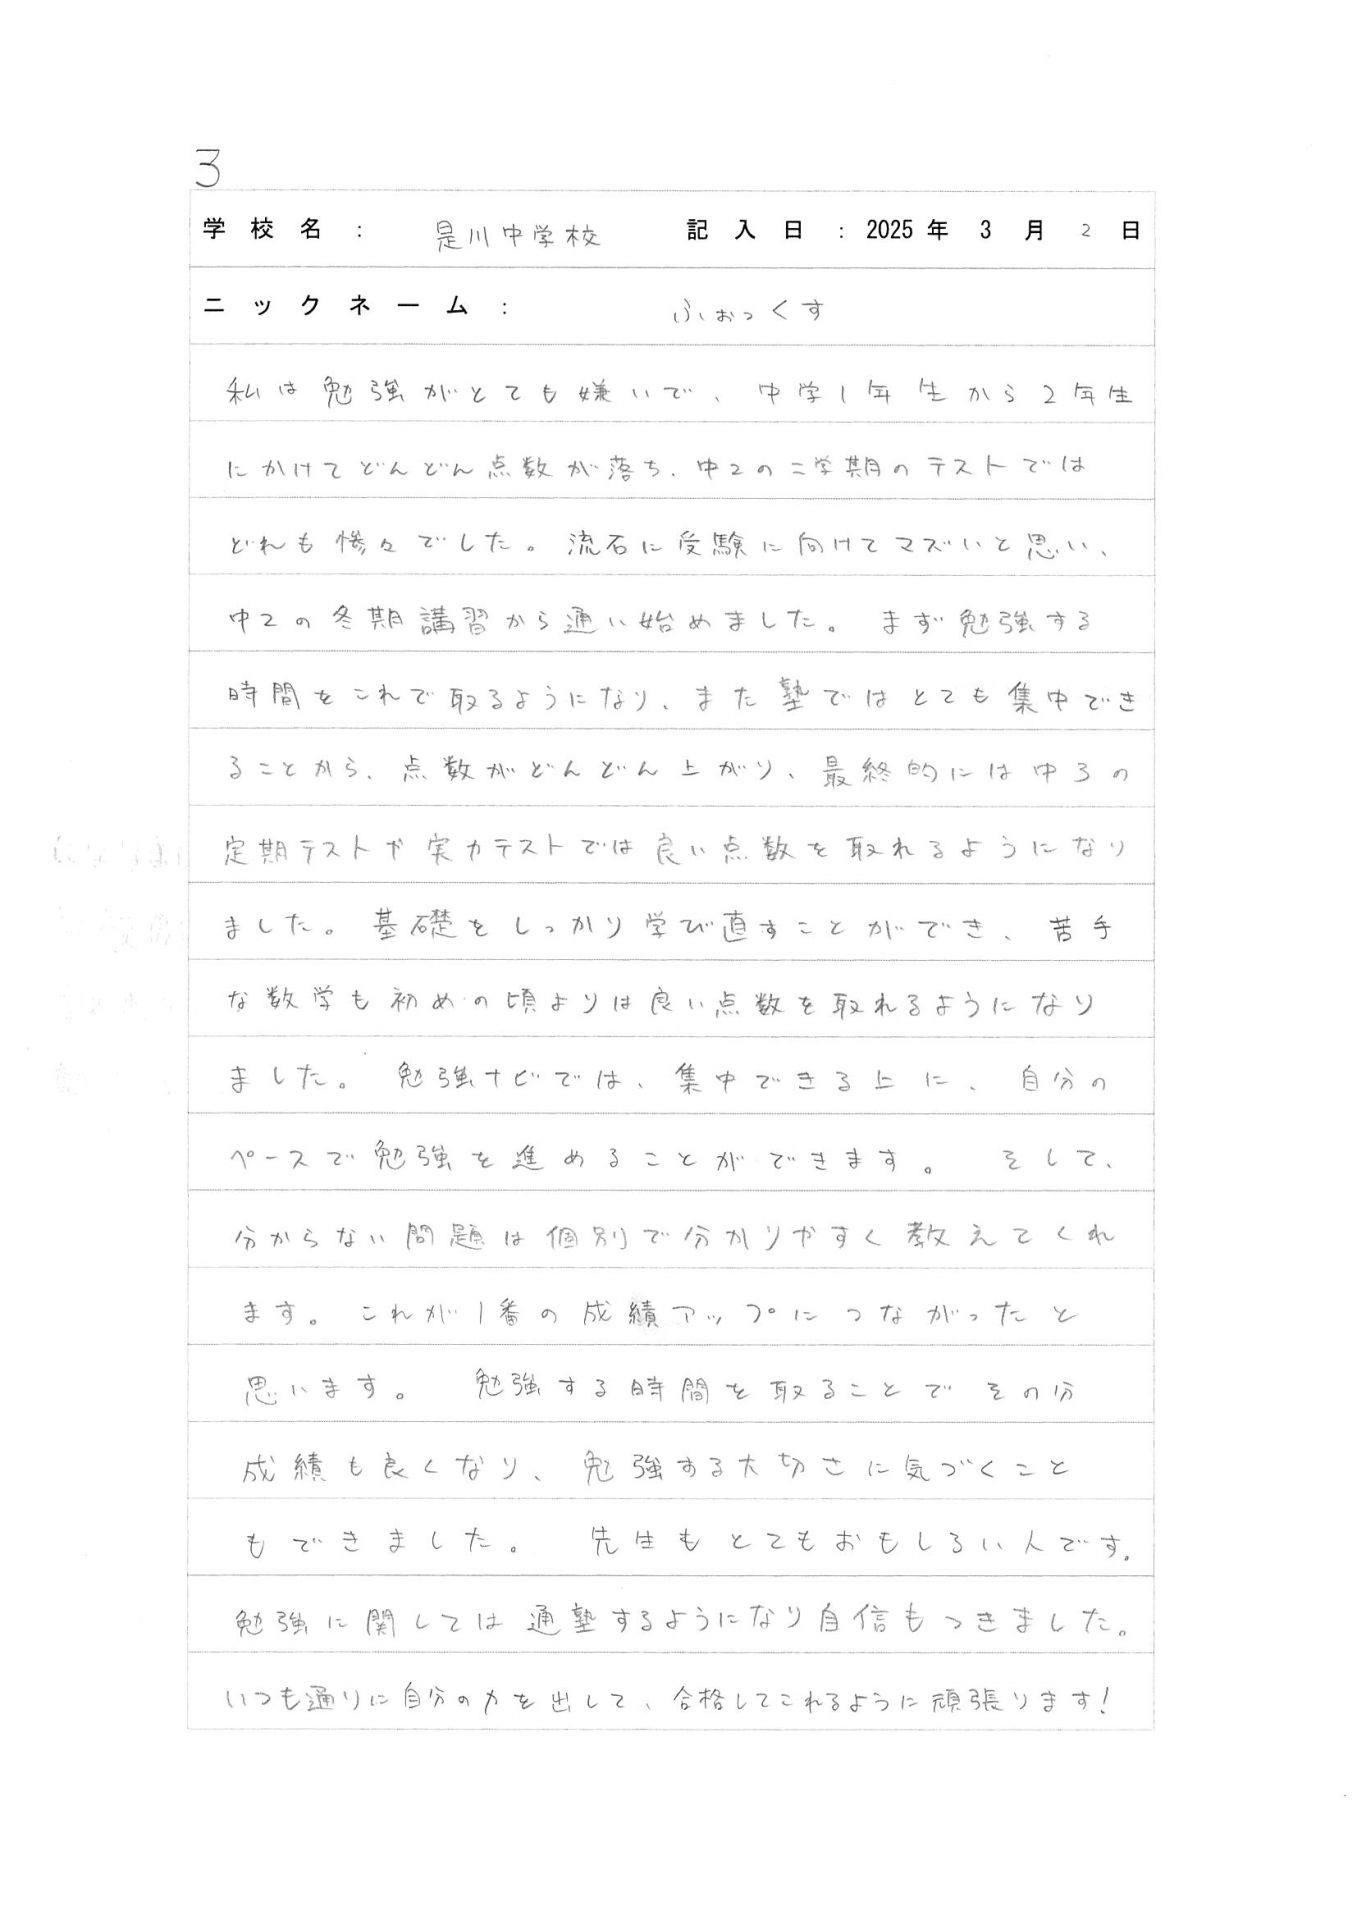 3
学校名： 是川中学校 記入日：2025年 3月 2日
ニックネーム： ふぉっくす
私は勉強がとても嫌いで、中学1年生から2年生
にかけてどんどん点数が落ち、中2の二学期のテストでは
どれも惨々でした。流石に受験に向けてマズいと思い、
中2の冬期講習から通い始めました。まず勉強する
時間をこれで取るようになり、また塾ではとても集中でき
ることから、点数がどんどん上がり、最終的には中3の
定期テストや実力テストでは良い点数を取れるようになり
ました。基礎をしっかり学び直すことができ、苦手
な数学も初めの頃よりは良い点数を取れるようになり
ました。勉強ナビでは、集中できる上に、自分の
ペースで勉強を進めることができます。そして、
分からない問題は個別で分かりやすく教えてくれ
ます。これが1番の成績アップにつながったと
思います。勉強する時間を取ることでその分
成績も良くなり、勉強する大切さに気づくこと
もできました。先生もとてもおもしろい人です。
勉強に関しては通塾するようになり自信もつきました。
いつも通りに自分の力を出して、合格してこれるように頑張ります！